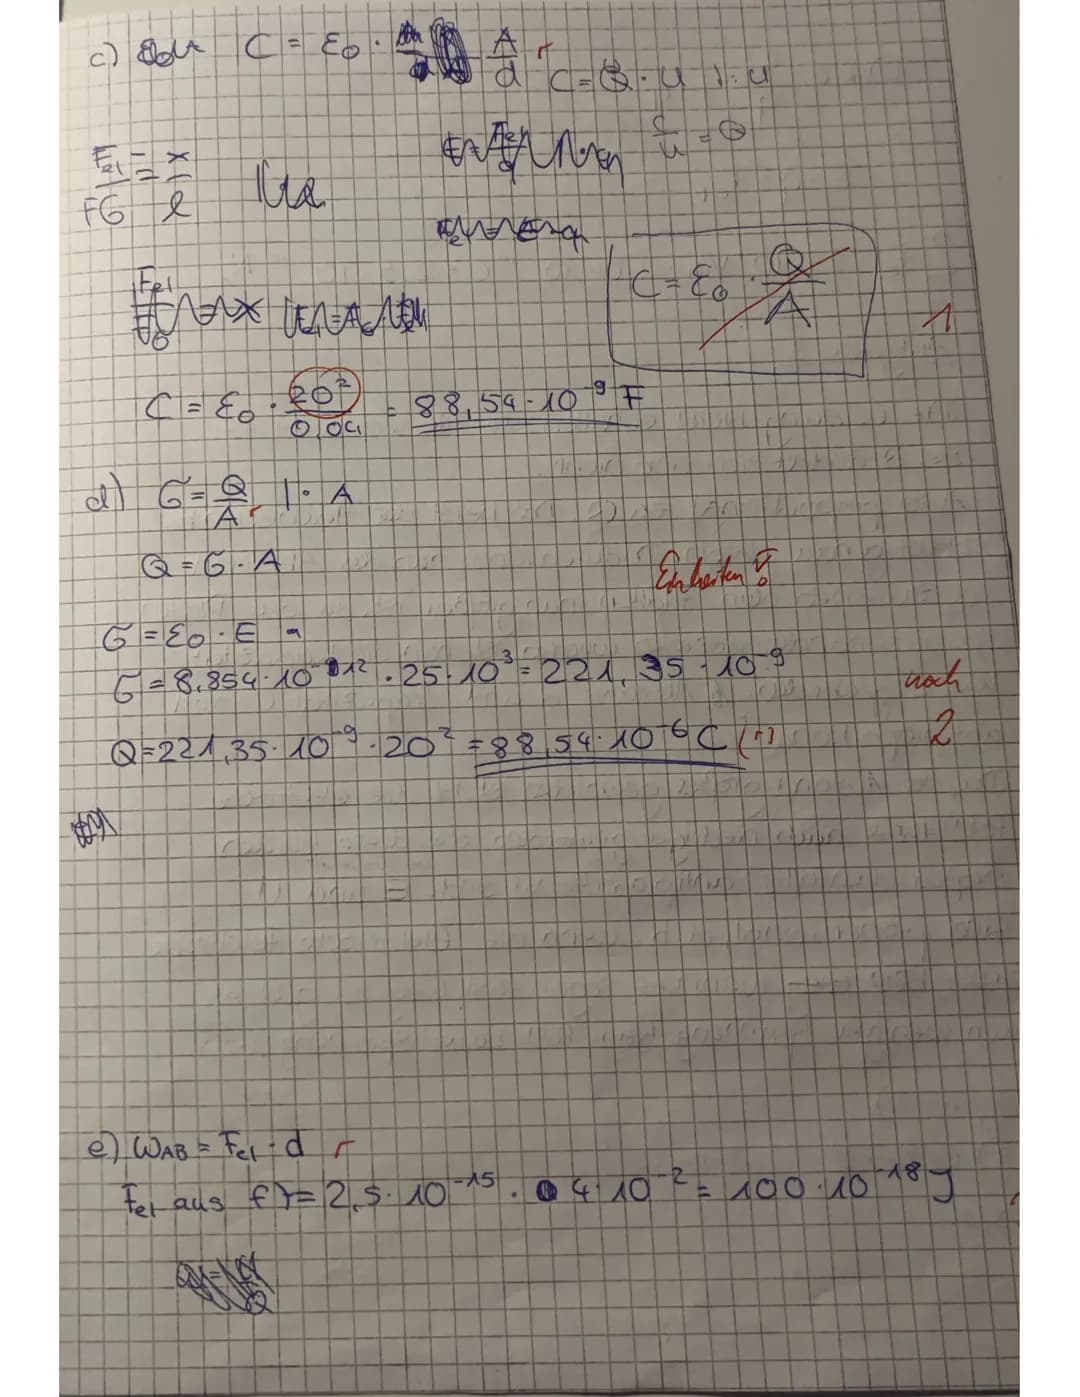 c) C = ε₀ · A/d
C = Q · U | : U
C/U = Q
Fel/FG = x/l
C = ε₀ · Q/A
1
C = ε₀ · 20²/0,04 = 88,54 · 10⁻⁹ F
d) σ = Q/A | · A
Q = σ · A
Einheiten!
σ = ε₀ · E
σ = 8,854 · 10⁻¹² · 25 · 10³ = 221,35 · 10⁻⁹
noch
2
Q = 221,35 · 10⁻⁹ · 20² = 88,54 · 10⁻⁶ C (r)
e) WAB = Fel · d
Fel aus f) = 2,5 · 10⁻¹⁵ · 4 · 10⁻² = 100 · 10⁻¹⁸ J